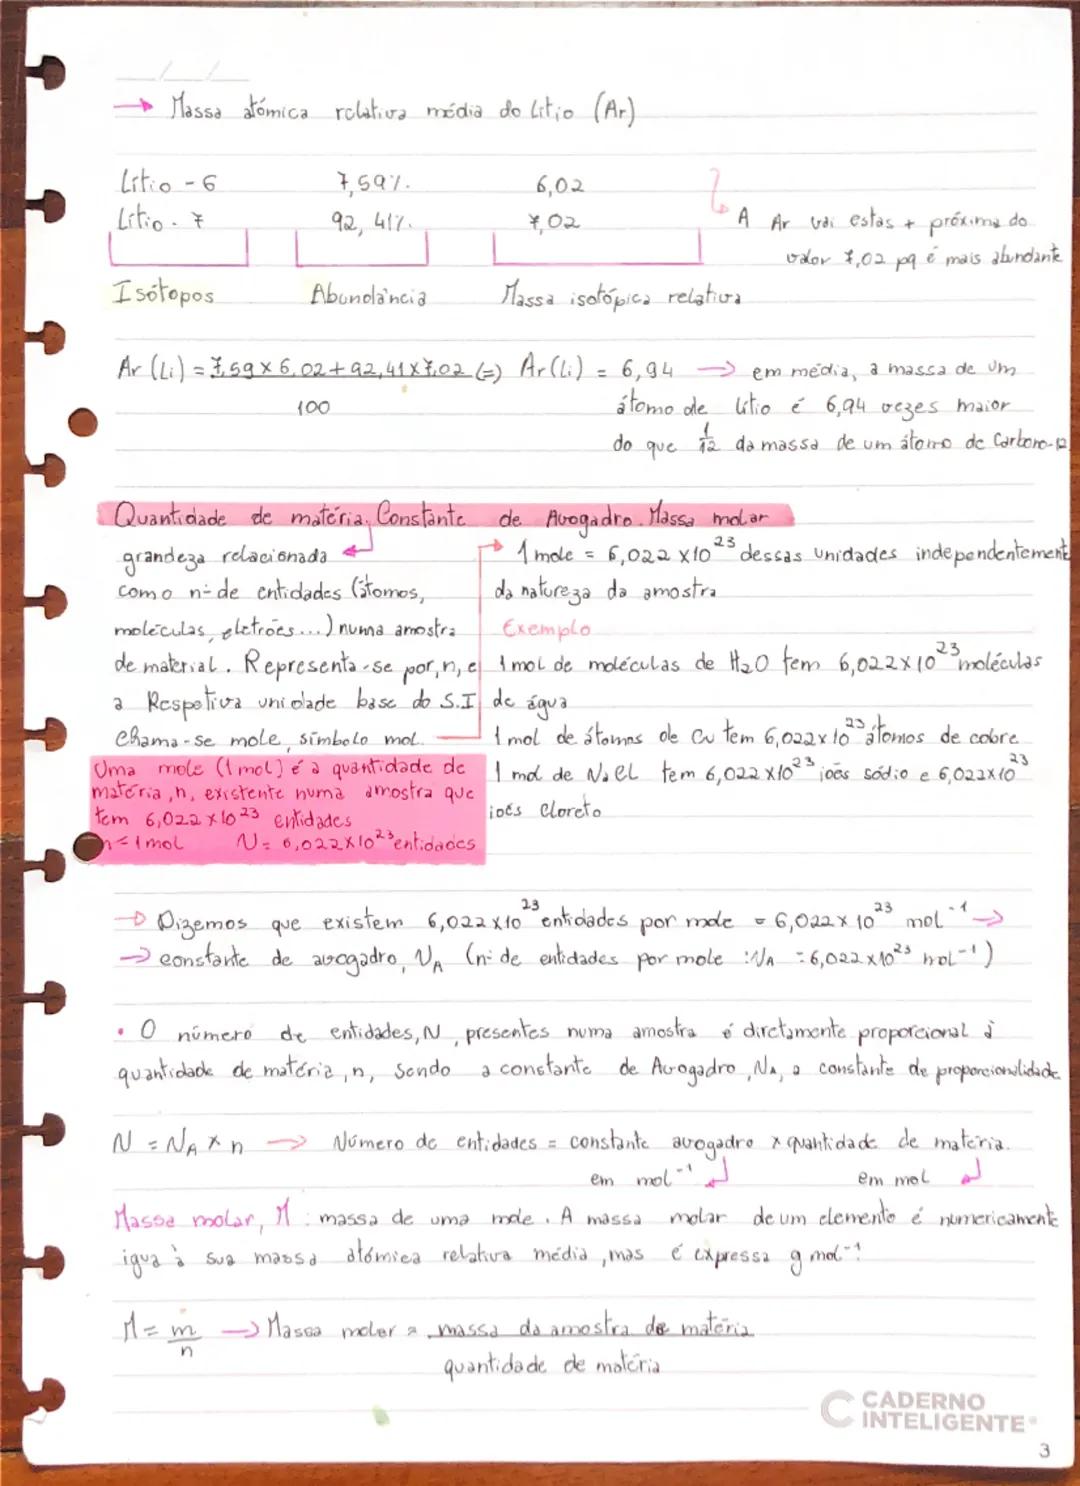 __/__/__
→ Massa atómica relativa média do Lítio (Ar)
Lítio - 6 7,59% 6,02
Lítio - 7 92,41% 7,02
A Ar vai estas + próxima do
valor 7,02 pq é mais abundante
Isótopos Abundância Massa isotópica relativa
Ar (Li) = 7,59 × 6,02 + 92,41 × 7,02 (=) Ar(Li) = 6,94 → em média, a massa de um
100
átomo de lítio é 6,94 vezes maior
do que 1/12 da massa de um átomo de Carbono-12
Quantidade de matéria. Constante de Avogadro. Massa molar
grandeza relacionada
como nº de entidades (átomos,
moléculas, eletrões...) numa amostra
de material. Representa-se por, n, e
a Respetiva unidade base do S.I
chama-se mole, símbolo mol.
Uma mole (1 mol) é a quantidade de
matéria, n, existente numa amostra que
tem 6,022 × 10²³ entidades
n = 1 mol N = 6,022×10²³ entidades
1 mole = 6,022 ×10²³ dessas unidades independentement
da natureza da amostra
Exemplo
1 mol de moléculas de H₂O tem 6,022×10²³ moléculas
de água
1 mol de átomos de Cu tem 6,022×10²³ átomos de cobre
1 mol de NaCl tem 6,022 ×10²³ iões sódio e 6,022×10²³
iões Cloreto
→ Dizemos que existem 6,022×10²³ entidades por mole = 6,022 × 10²³ mol⁻¹ →
→ constante de avogadro, NA (nº de entidades por mole : NA = 6,022×10²³ mol⁻¹)
• O número de entidades, N, presentes numa amostra é diretamente proporcional à
quantidade de matéria, n, sendo a constante de Avogadro, NA, a constante de proporcionalidade
N = NA × n → Número de entidades = constante avogadro × quantidade de matéria.
em mol⁻¹ em mol
Massa molar, M : massa de uma mole. A massa molar de um elemento é numericamente
igua à sua massa atómica relativa média, mas é expressa g mol⁻¹.
M = m/n → Massa molar = massa da amostra de matéria
quantidade de matéria
CADERNO
INTELIGENTE®
3